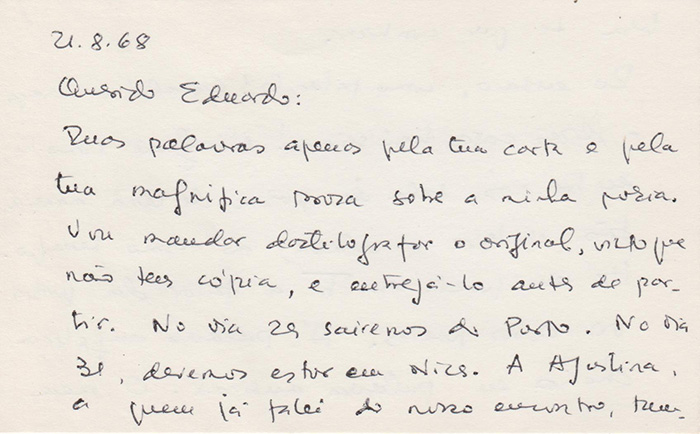 21.8.68
Querido Eduardo:
Duas palavras apenas pela tua carta e pela
tua magnífica prosa sobre a minha poesia.
Vou mandar dactilografar o original, visto que
não tens cópia, e entregá-lo antes de par-
tir. No dia 29 sairemos do Porto. No dia
31, devemos estar em Nice. A Agustina,
a quem já falei do nosso encontro, tam-